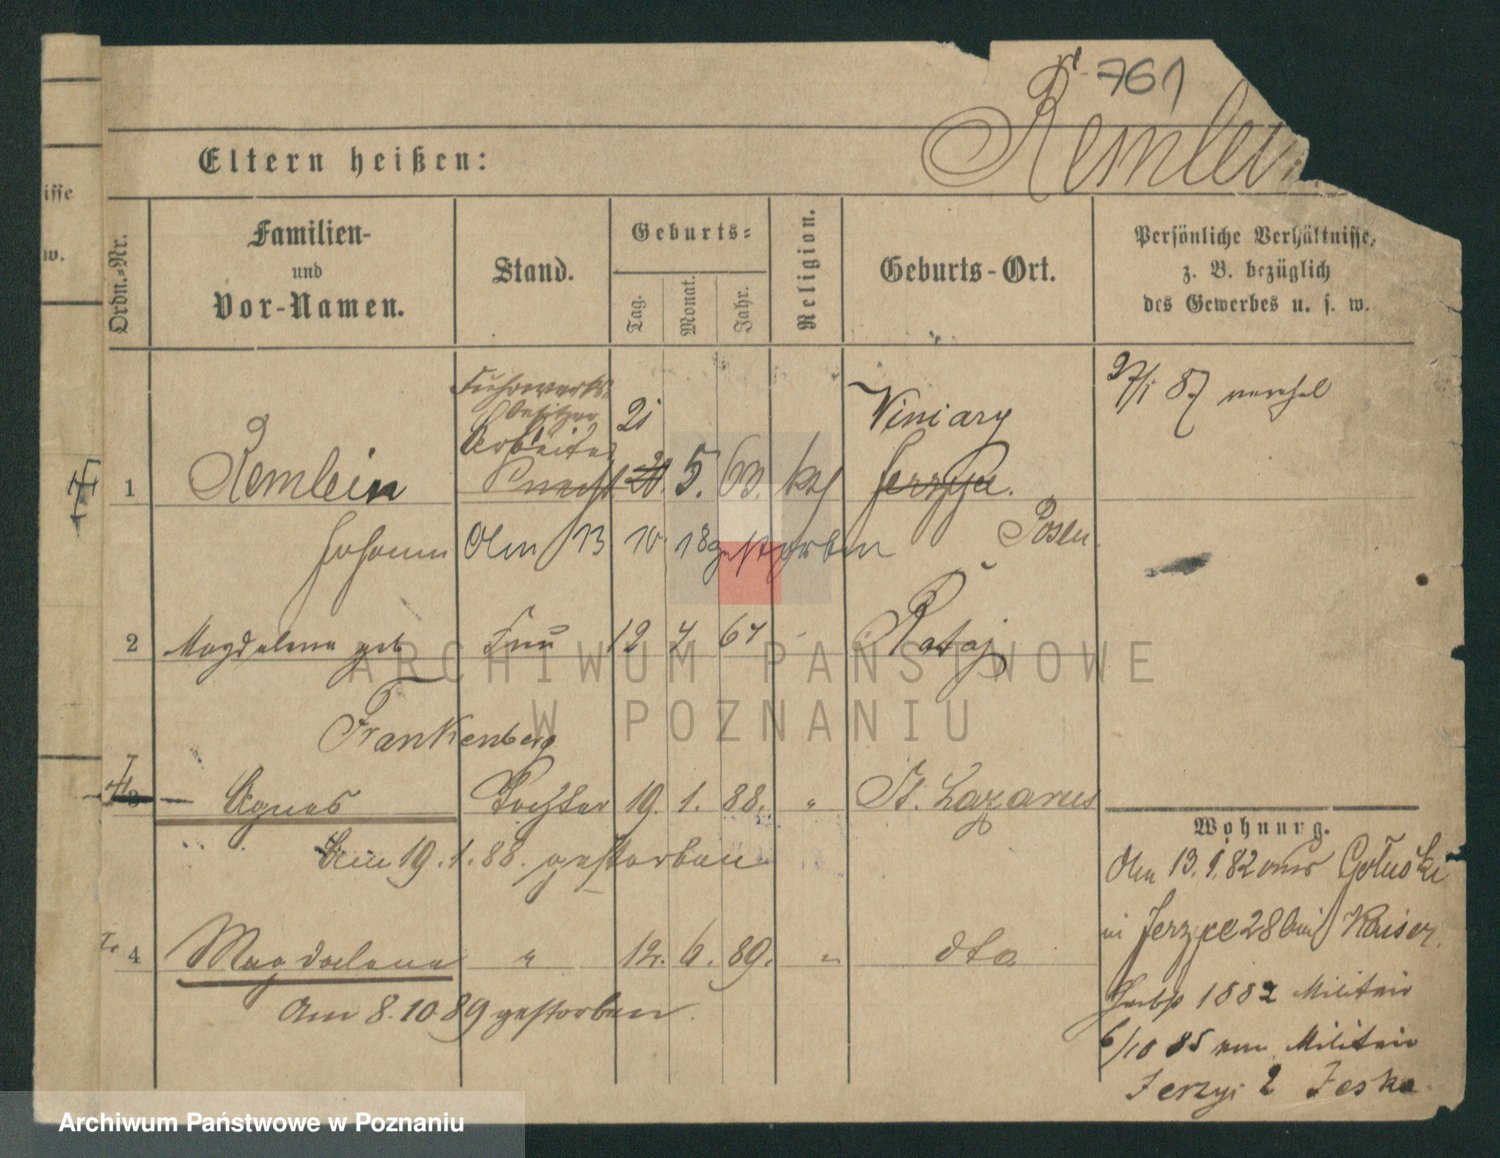 761
Remlein
Eltern heißen:
isse
w.
Ordn.-Nr.
Familien-
und
Vor-Namen.
Stand.
Geburts-
Tag.
Monat.
Jahr.
Religion.
Geburts-Ort.
Persönliche Verhältnisse,
z. B. bezüglich
des Gewerbes u. s. w.
Fuhrwerks
besitzer
Arbeiter
1 Remlein Knecht 21 20. 5. 60. kath Winiary Jerzyce.
27/1 87 verehel
Johann Am 13 10 18 gestorben Posen.
2 Magdalena geb Frau 12 7 67 Rataj
Frankenberg
3 Agnes Tochter 19. 1. 88. " St. Lazarus
Am 19.1.88. gestorben
4 Magdalena " 12. 6. 89. " dto
Am 8.10.89 gestorben.
Wohnung.
Am 13.1.82 aus
in Jerzyce 28 bei Kaiser.
Herbst 1882 Militair
6/10 85 vom Militair
Jerzyi 2 Jeska
ARCHIWUM PAŃSTWOWE
W POZNANIU
Archiwum Państwowe w Poznaniu